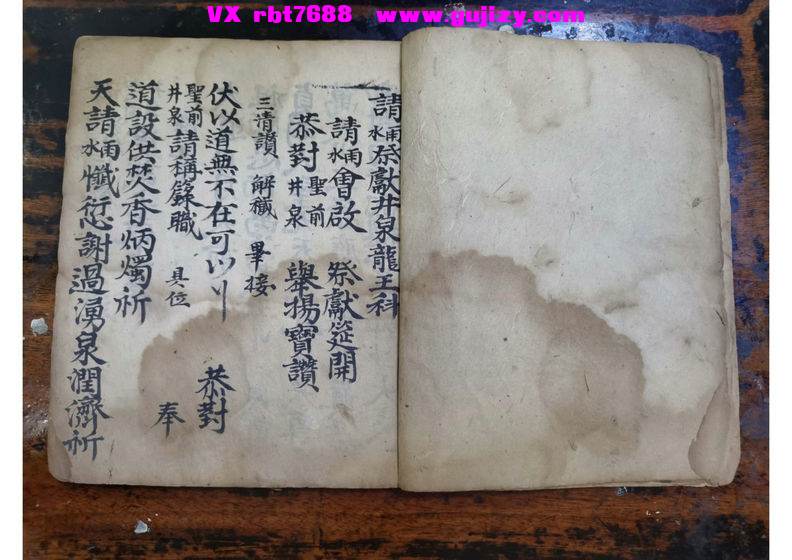 VX rbt7688  www.gujizy.com
請雨水祭獻井泉龍王科
請雨水會啟 祭獻筵開
恭對聖前井泉 舉揚寶讚
三清讚 解穢 畢接
伏以道無不在可以 恭對
聖前井泉請稱籙職 具位 奉
道設供焚香炳燭祈
天請雨水懺愆謝過湧泉潤濟祈